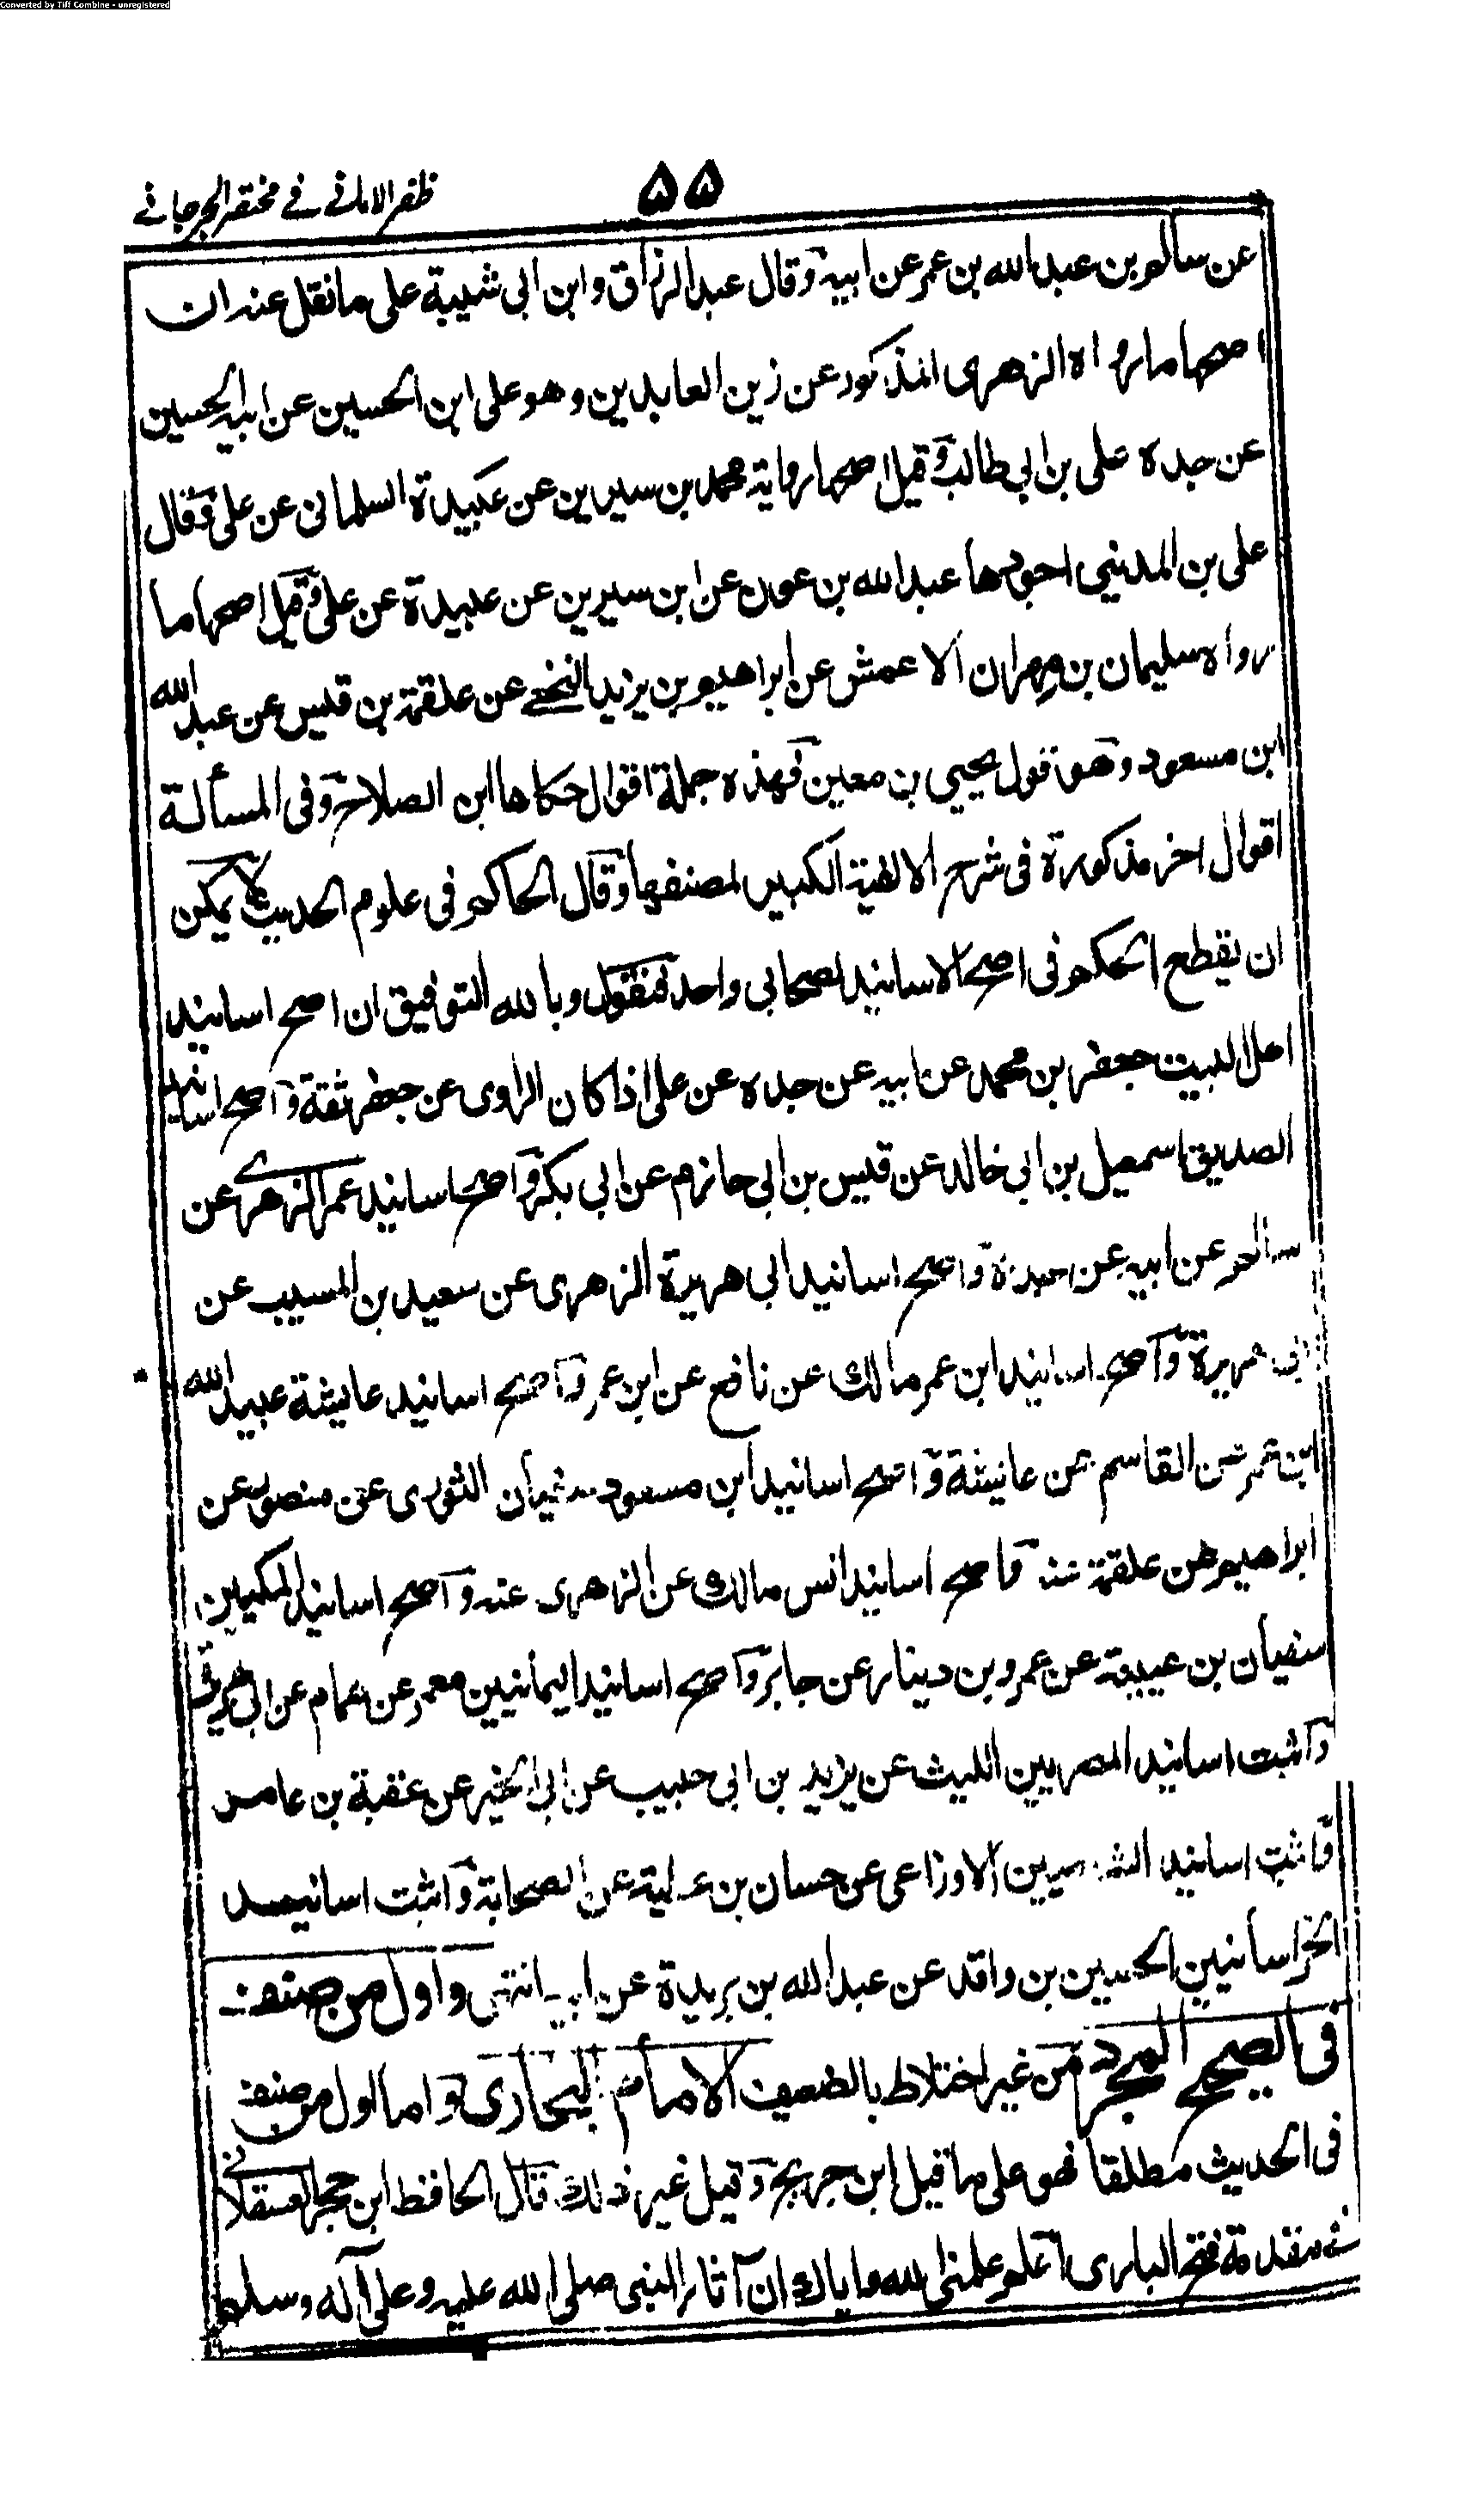 Converted by Tiff Combine - unregistered
ظفر الامانی فے مختصر الجرجانے
۵۵
عن سالم بن عبد الله بن عمر عن ابيه وقال عبد الرزاق وابن ابى شيبة على ما نقل عنه ان
اصحها ما رواه الزهرى المذكور عن زين العابدين وهو على ابن الحسين عن ابيه الحسين
عن جده على بن ابى طالب وقيل اصحها رواية محمد بن سيرين عن عبيدة السلمانى عن على وقال
على بن المدينى اجودها عبد الله بن عون عن ابن سيرين عن عبيدة عن على وقيل اصحها ما
رواه سليمان بن مهران الاعمش عن ابراهيم بن يزيد النخعے عن علقمة بن قيس عن عبد الله
ابن مسعود وهو قول يحيى بن معين فهذه جملة اقوال حكاها ابن الصلاح وفى المسألة
اقوال اخر مذكورة فى شرح الالفية الكبير لمصنفها وقال الحاكم فى علوم الحديث لا يمكن
ان يقطع الحكم فى اصح الاسانيد لصحابى واحد فنقول وبالله التوفيق ان اصح اسانيد
اهل البيت جعفر بن محمد عن ابيه عن جده عن على اذا كان الراوى عن جعفر ثقة واصح اسانيد
الصديق اسمعيل بن ابى خالد عن قيس بن ابى حازم عن ابى بكر واصح اسانيد عمر الزهرے عن
سالم عن ابيه عن جده واصح اسانيد ابى هريرة الزهرى عن سعيد بن المسيب عن
ابى هريرة واصح اسانيد ابن عمر مالك عن نافع عن ابن عمر واصح اسانيد عايشة عبيد الله
ابن عمر عن القاسم عن عايشة واصح اسانيد ابن مسعود سفيان الثورى عن منصور عن
ابراهيم عن علقمة عنه واصح اسانيد انس مالك عن الزهرى عنه واصح اسانيد المكيين
سفيان بن عيينة عن عمرو بن دينار عن جابر واصح اسانيد اليمانيين معمر عن همام عن ابى هريرة
واثبت اسانيد المصريين الليث عن يزيد بن ابى حبيب عن ابى الخير عن عقبة بن عامر
واثبت اسانيد الشاميين الاوزاعى عن حسان بن عطية عن الصحابة واثبت اسانيد
الخراسانيين الحسين بن واقد عن عبد الله بن بريدة عن ابيه انتهى واول من صنف
فى الصحيح المجرد من غير اختلاط بالضعيف الامام البخارى واما اول من صنف
فى الحديث مطلقا فهو على ما قيل ابن جريج وقيل غير ذلك قال الحافظ ابن حجر العسقلانے
فے مقدمة فتح البارى اعلم علمنى الله واياك ان آثار النبى صلى الله عليه وعلى آله وسلم